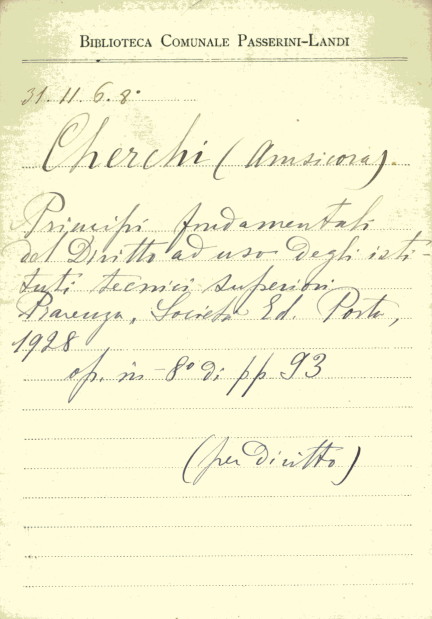 BIBLIOTECA COMUNALE PASSERINI-LANDI
31.11.6.8°
Cherchi (Amsicora).
Principi fondamentali
del Diritto ad uso degli isti-
tuti tecnici superiori
Società Ed. Porta,
1928
op. in-8° di pp 93
(per diritto)